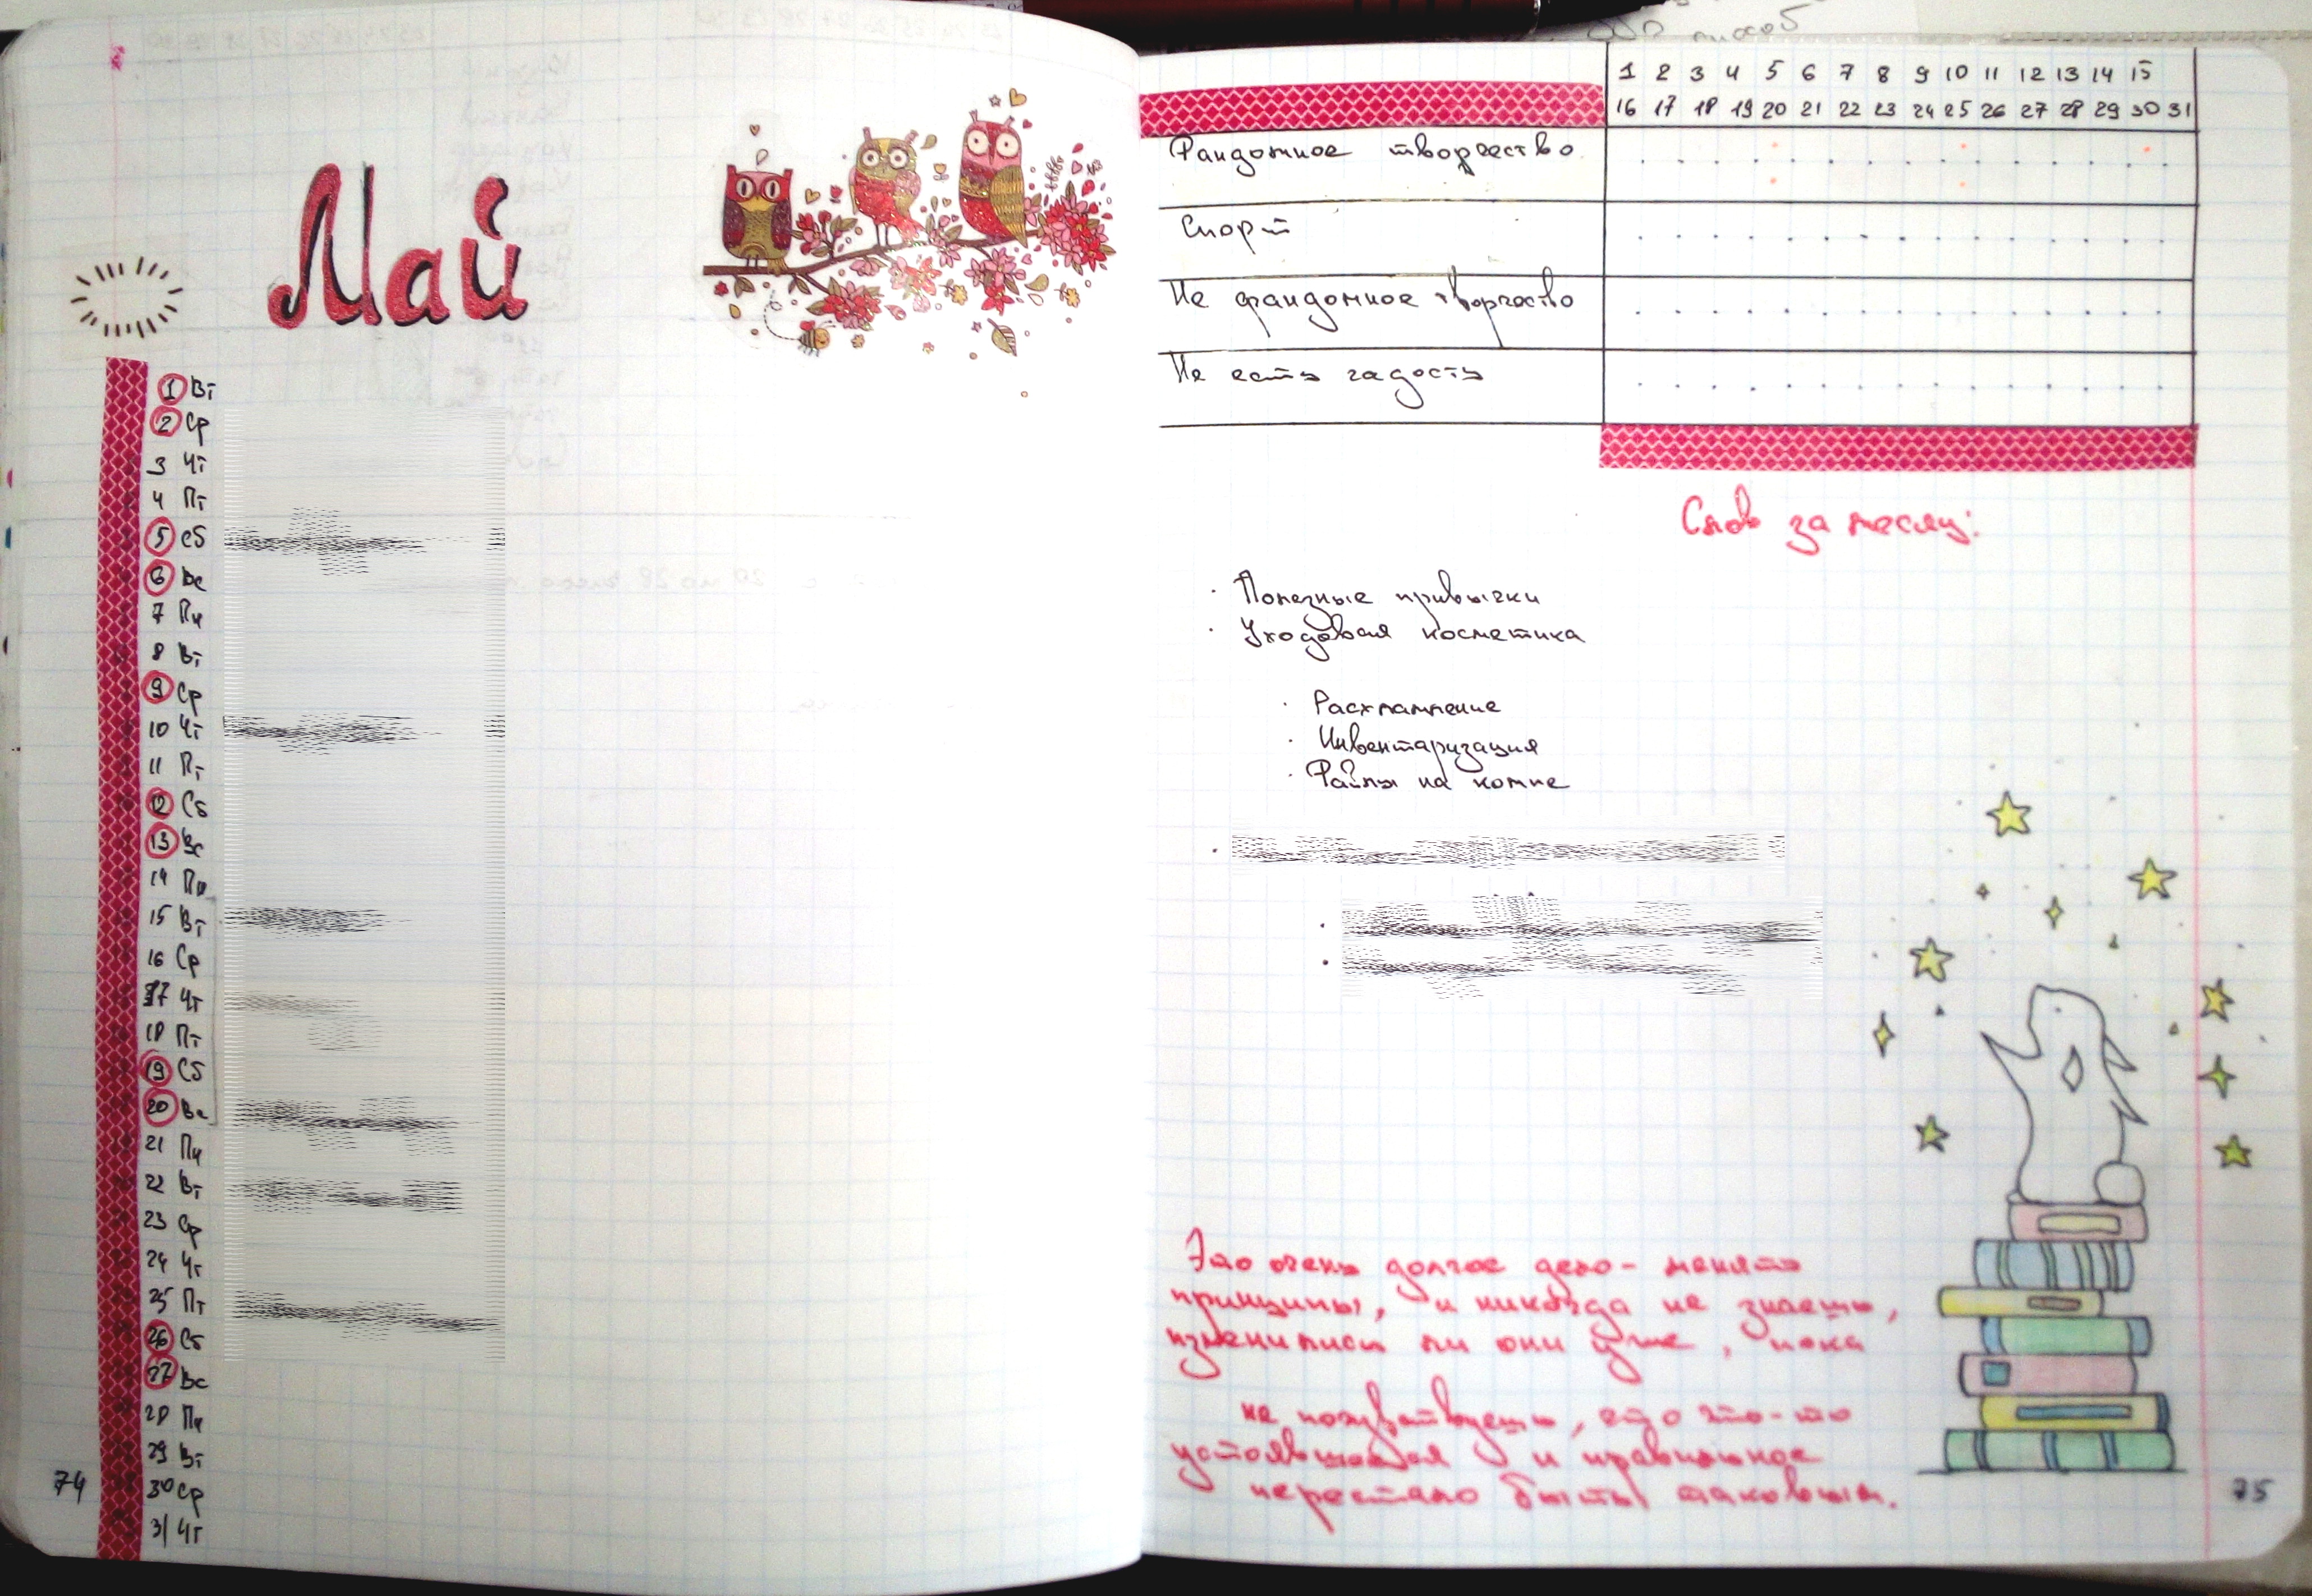 Май
1 Вт
2 Ср
3 Чт
4 Пт
5 Сб
6 Вс
7 Пн
8 Вт
9 Ср
10 Чт
11 Пт
12 Сб
13 Вс
14 Пн
15 Вт
16 Ср
17 Чт
18 Пт
19 Сб
20 Вс
21 Пн
22 Вт
23 Ср
24 Чт
25 Пт
26 Сб
27 Вс
28 Пн
29 Вт
30 Ср
31 Чт
74
1 2 3 4 5 6 7 8 9 10 11 12 13 14 15
16 17 18 19 20 21 22 23 24 25 26 27 28 29 30 31
Фандомное творчество
Спорт
Не фандомное творчество
Не есть гадость
Слов за месяц:
· Полезные привычки
· Уходовая косметика
· Расхламление
· Инвентаризация
· Файлы на компе
Это очень долгое дело - менять
принципы, и никогда не знаешь,
изменились ли они уже, пока
не почувствуешь, что что-то
устоявшееся и правильное
перестало быть таковым.
75